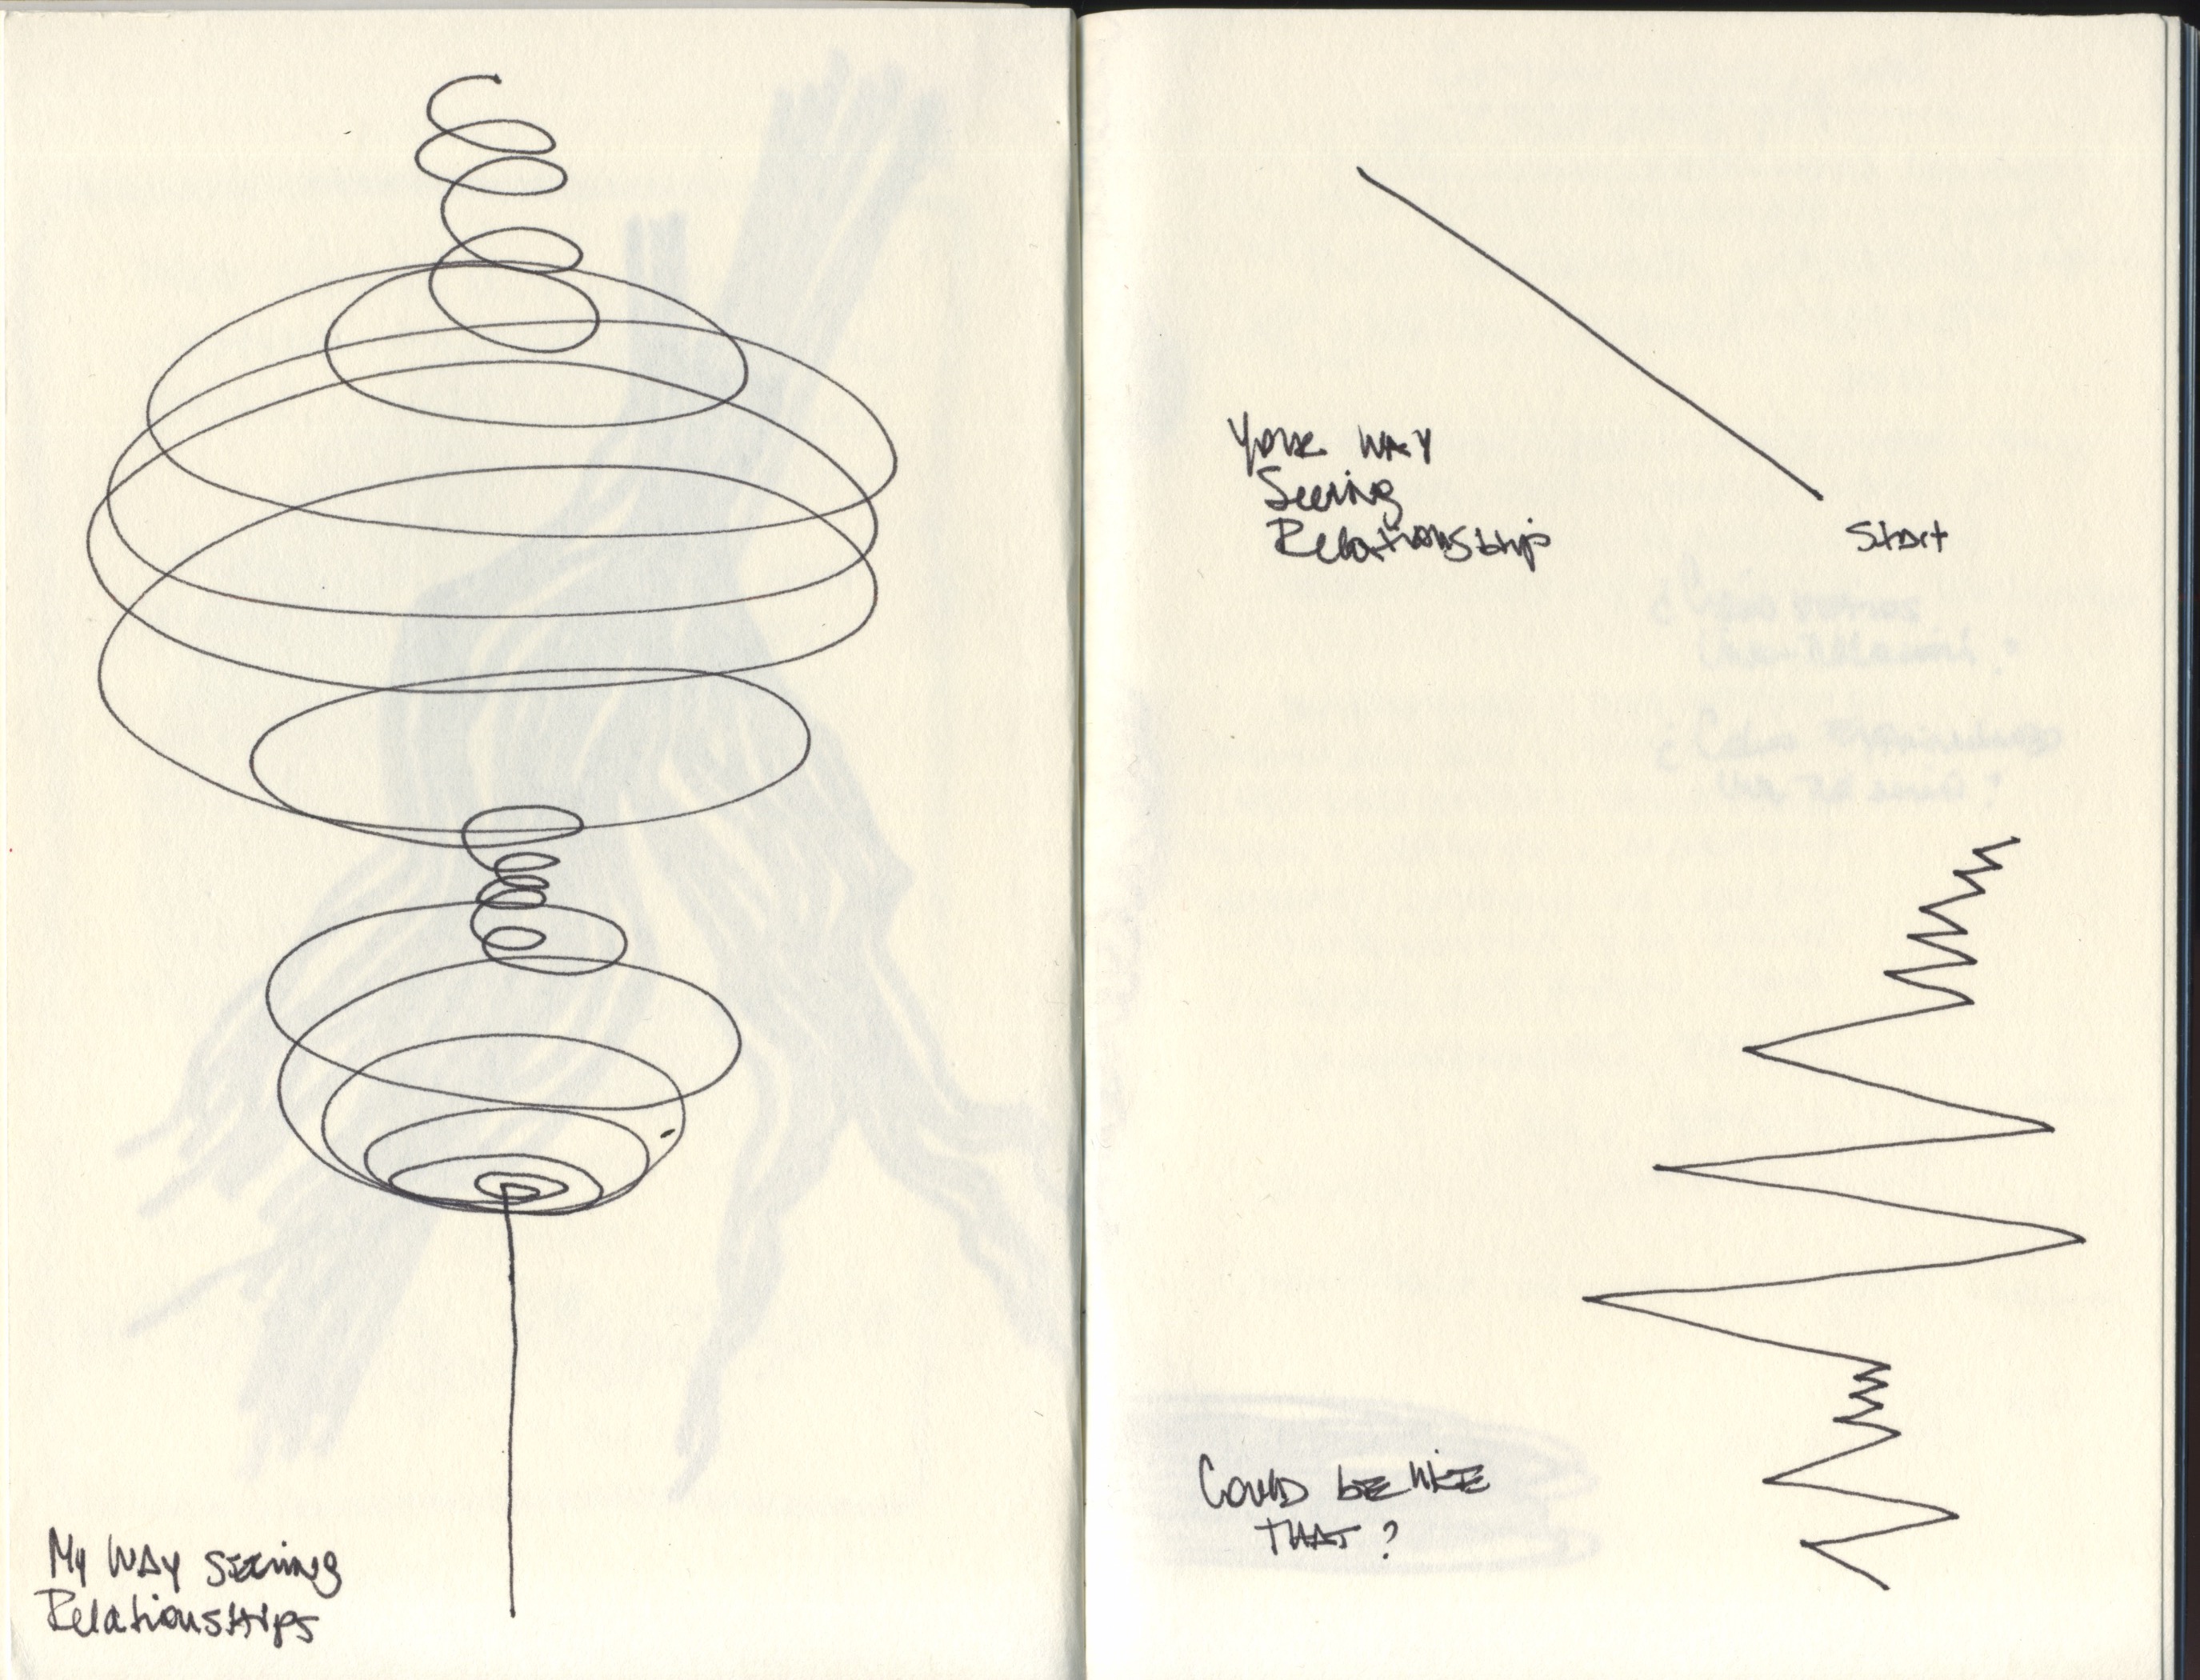 My WAY seeing
Relationships
Your WAY
Seeing
Relationships
Start
Could be like
THAT?